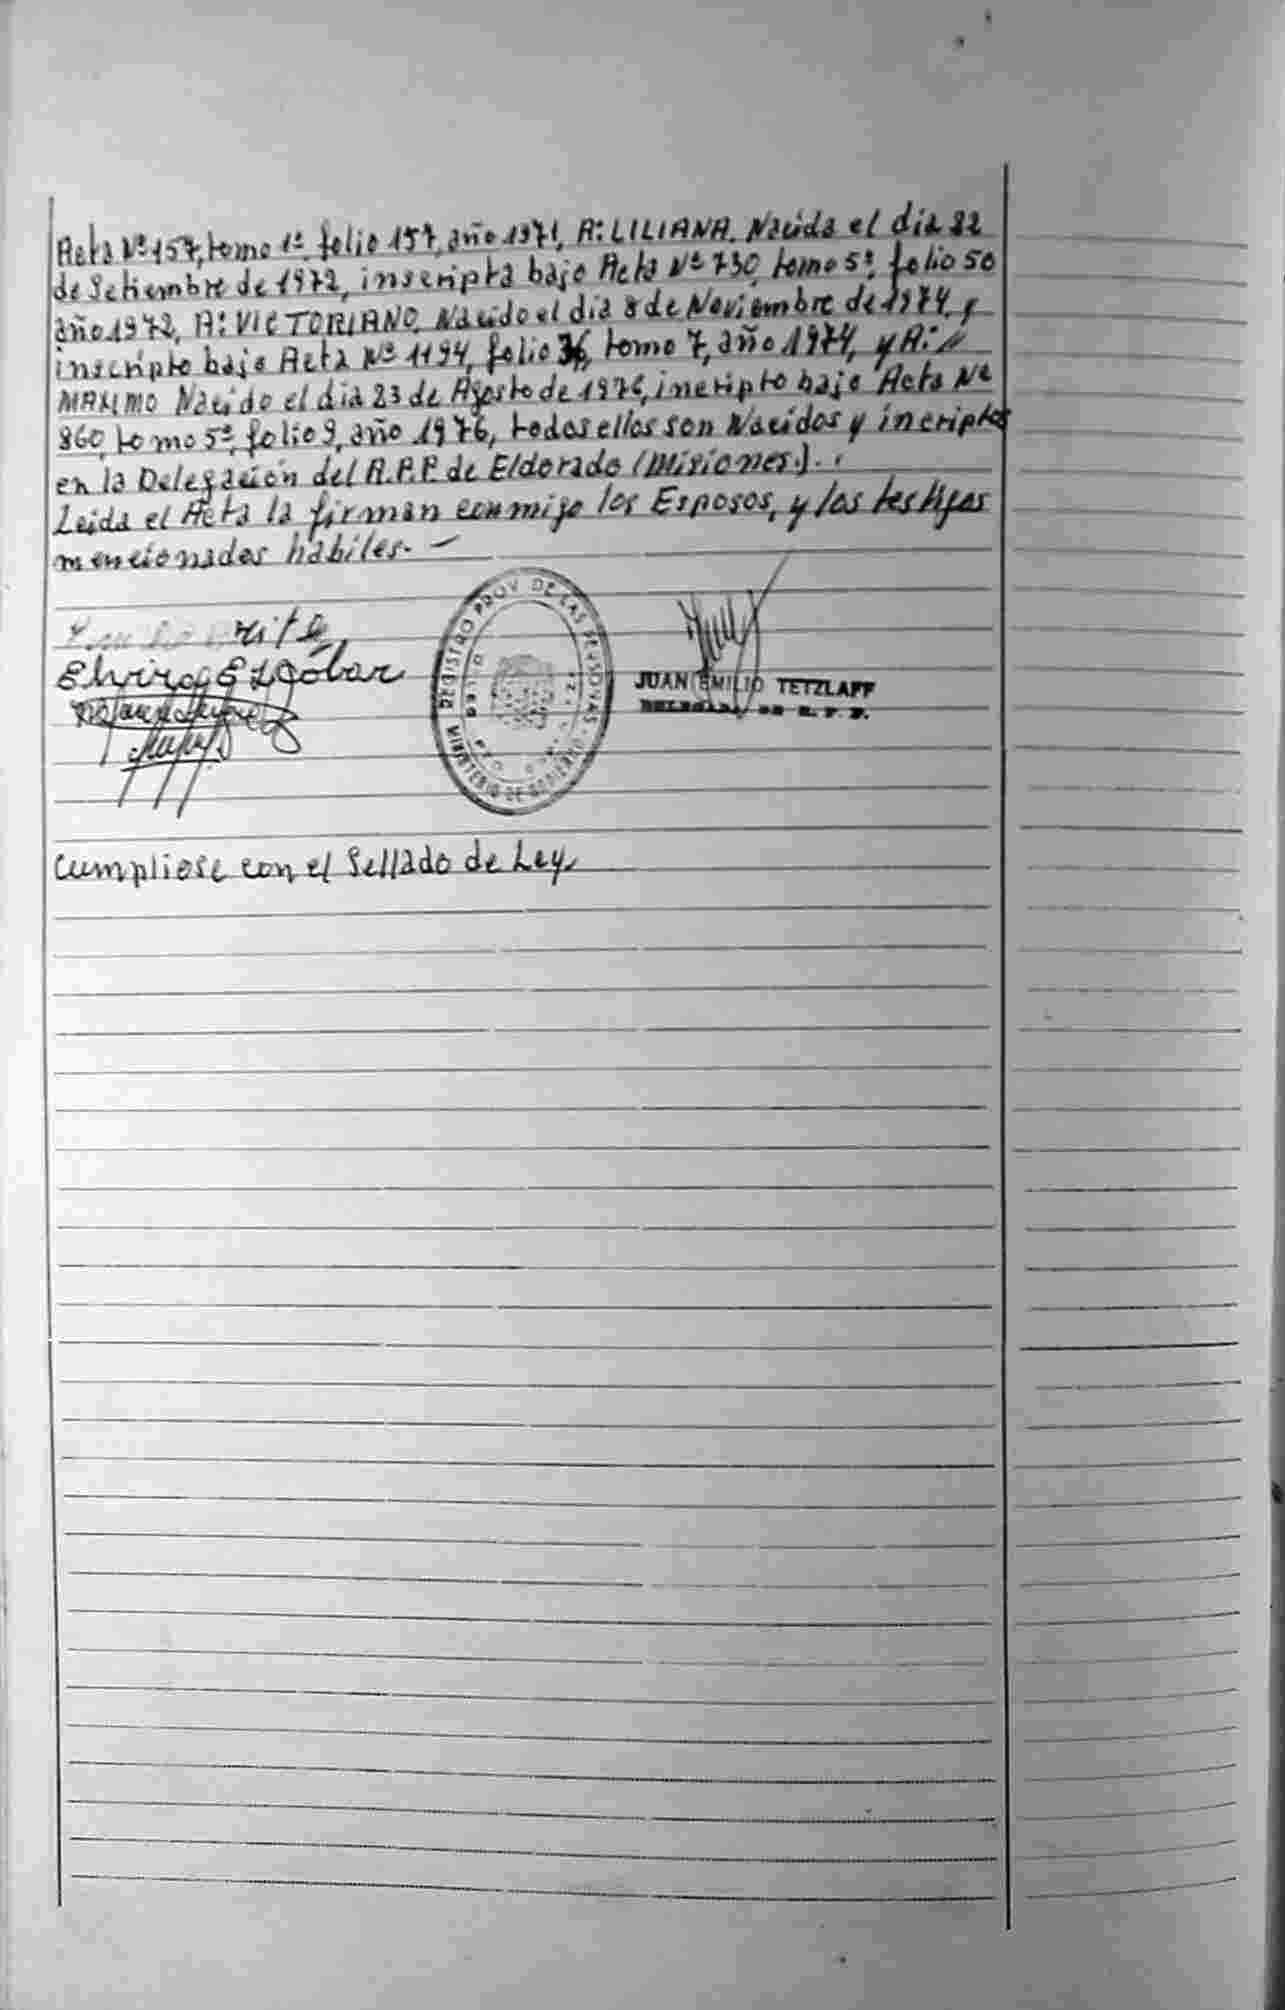 Acta Nº 157, tomo 1º folio 157, año 1971, A: LILIANA. Nacida el día 22
de Setiembre de 1972, inscripta bajo Acta Nº 730, tomo 5º, folio 50
año 1972, A: VICTORIANO, Nacido el dia 8 de Noviembre de 1974, y
inscripto bajo Acta Nº 1194, folio 36, tomo 7, año 1974, y A:
MAXIMO Nacido el dia 23 de Agosto de 1976, incripto bajo Acta Nº
860, tomo 5º, folio 9, año 1976, todos ellos son Nacidos y incriptos
en la Delegación del R.P.P. de Eldorado (Misiones.).
Leida el Acta la firman conmigo los Esposos, y los testigos
mencionados habiles. -
Elvira Escobar
REGISTRO PROV. DE LAS PERSONAS
MINISTERIO DE GOBIERNO
JUAN EMILIO TETZLAFF
DELEGADO DE R. P. P.
Cumpliose con el Sellado de Ley.